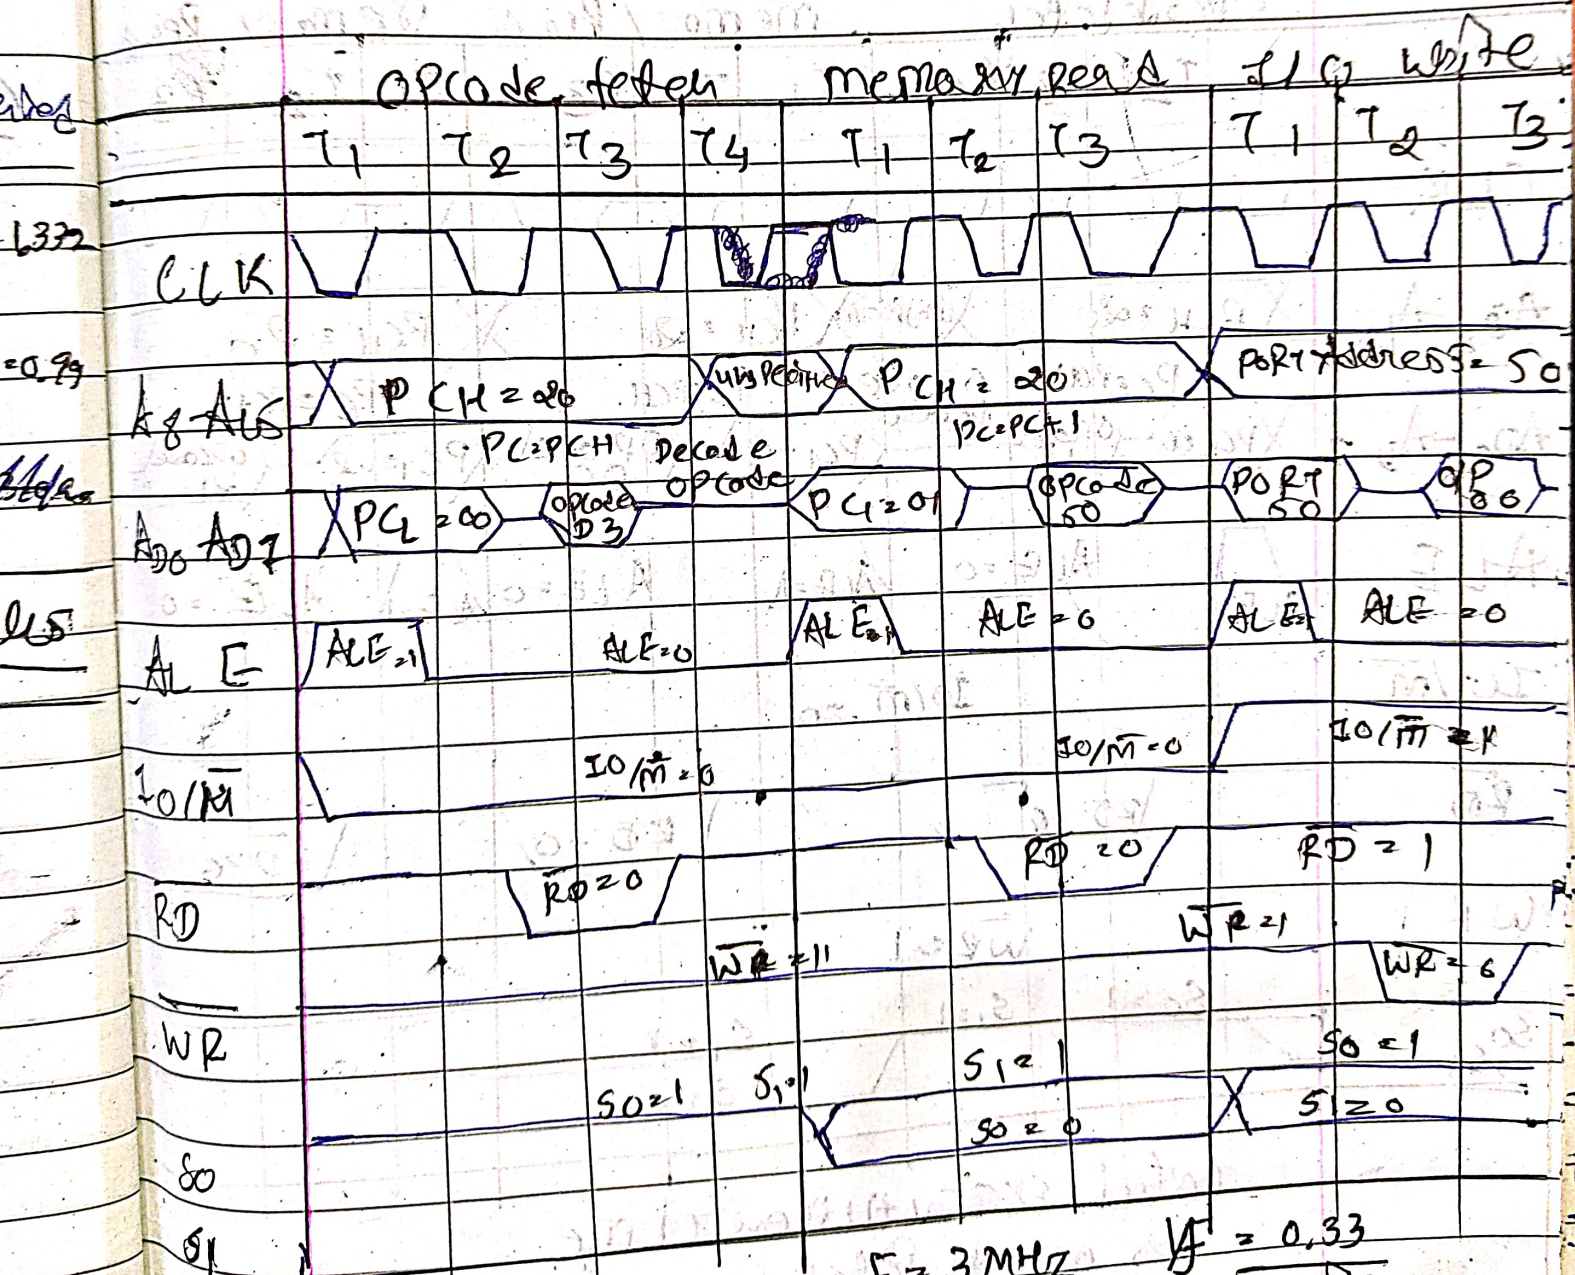 OPCode fetch memory Read I/O write
T1 T2 T3 T4 T1 T2 T3 T1 T2 T3
6332
CLK
=0.99
A8-A15 PCH=20 unspecified PCH=20 PORT Address=50
PC=PCH Decode OPCode PC=PC+1
AD0 AD7 PCL=00 OPCode D3 PCL=01 OPCode 50 PORT 50 OP 00
ALE ALE=1 ALE=0 ALE=1 ALE=0 ALE=1 ALE=0
IO/M̅ IO/M̅=0 IO/M̅=0 IO/M̅=1
RD R̅D̅=0 R̅D̅=0 R̅D̅=1
W̅R̅ W̅R̅=1 W̅R̅=1 W̅R̅=0
S0 S0=1 S1=1 S1=1 S0=1
S1 S0=0 S1=0
F = 3 MHz 1/F = 0.33